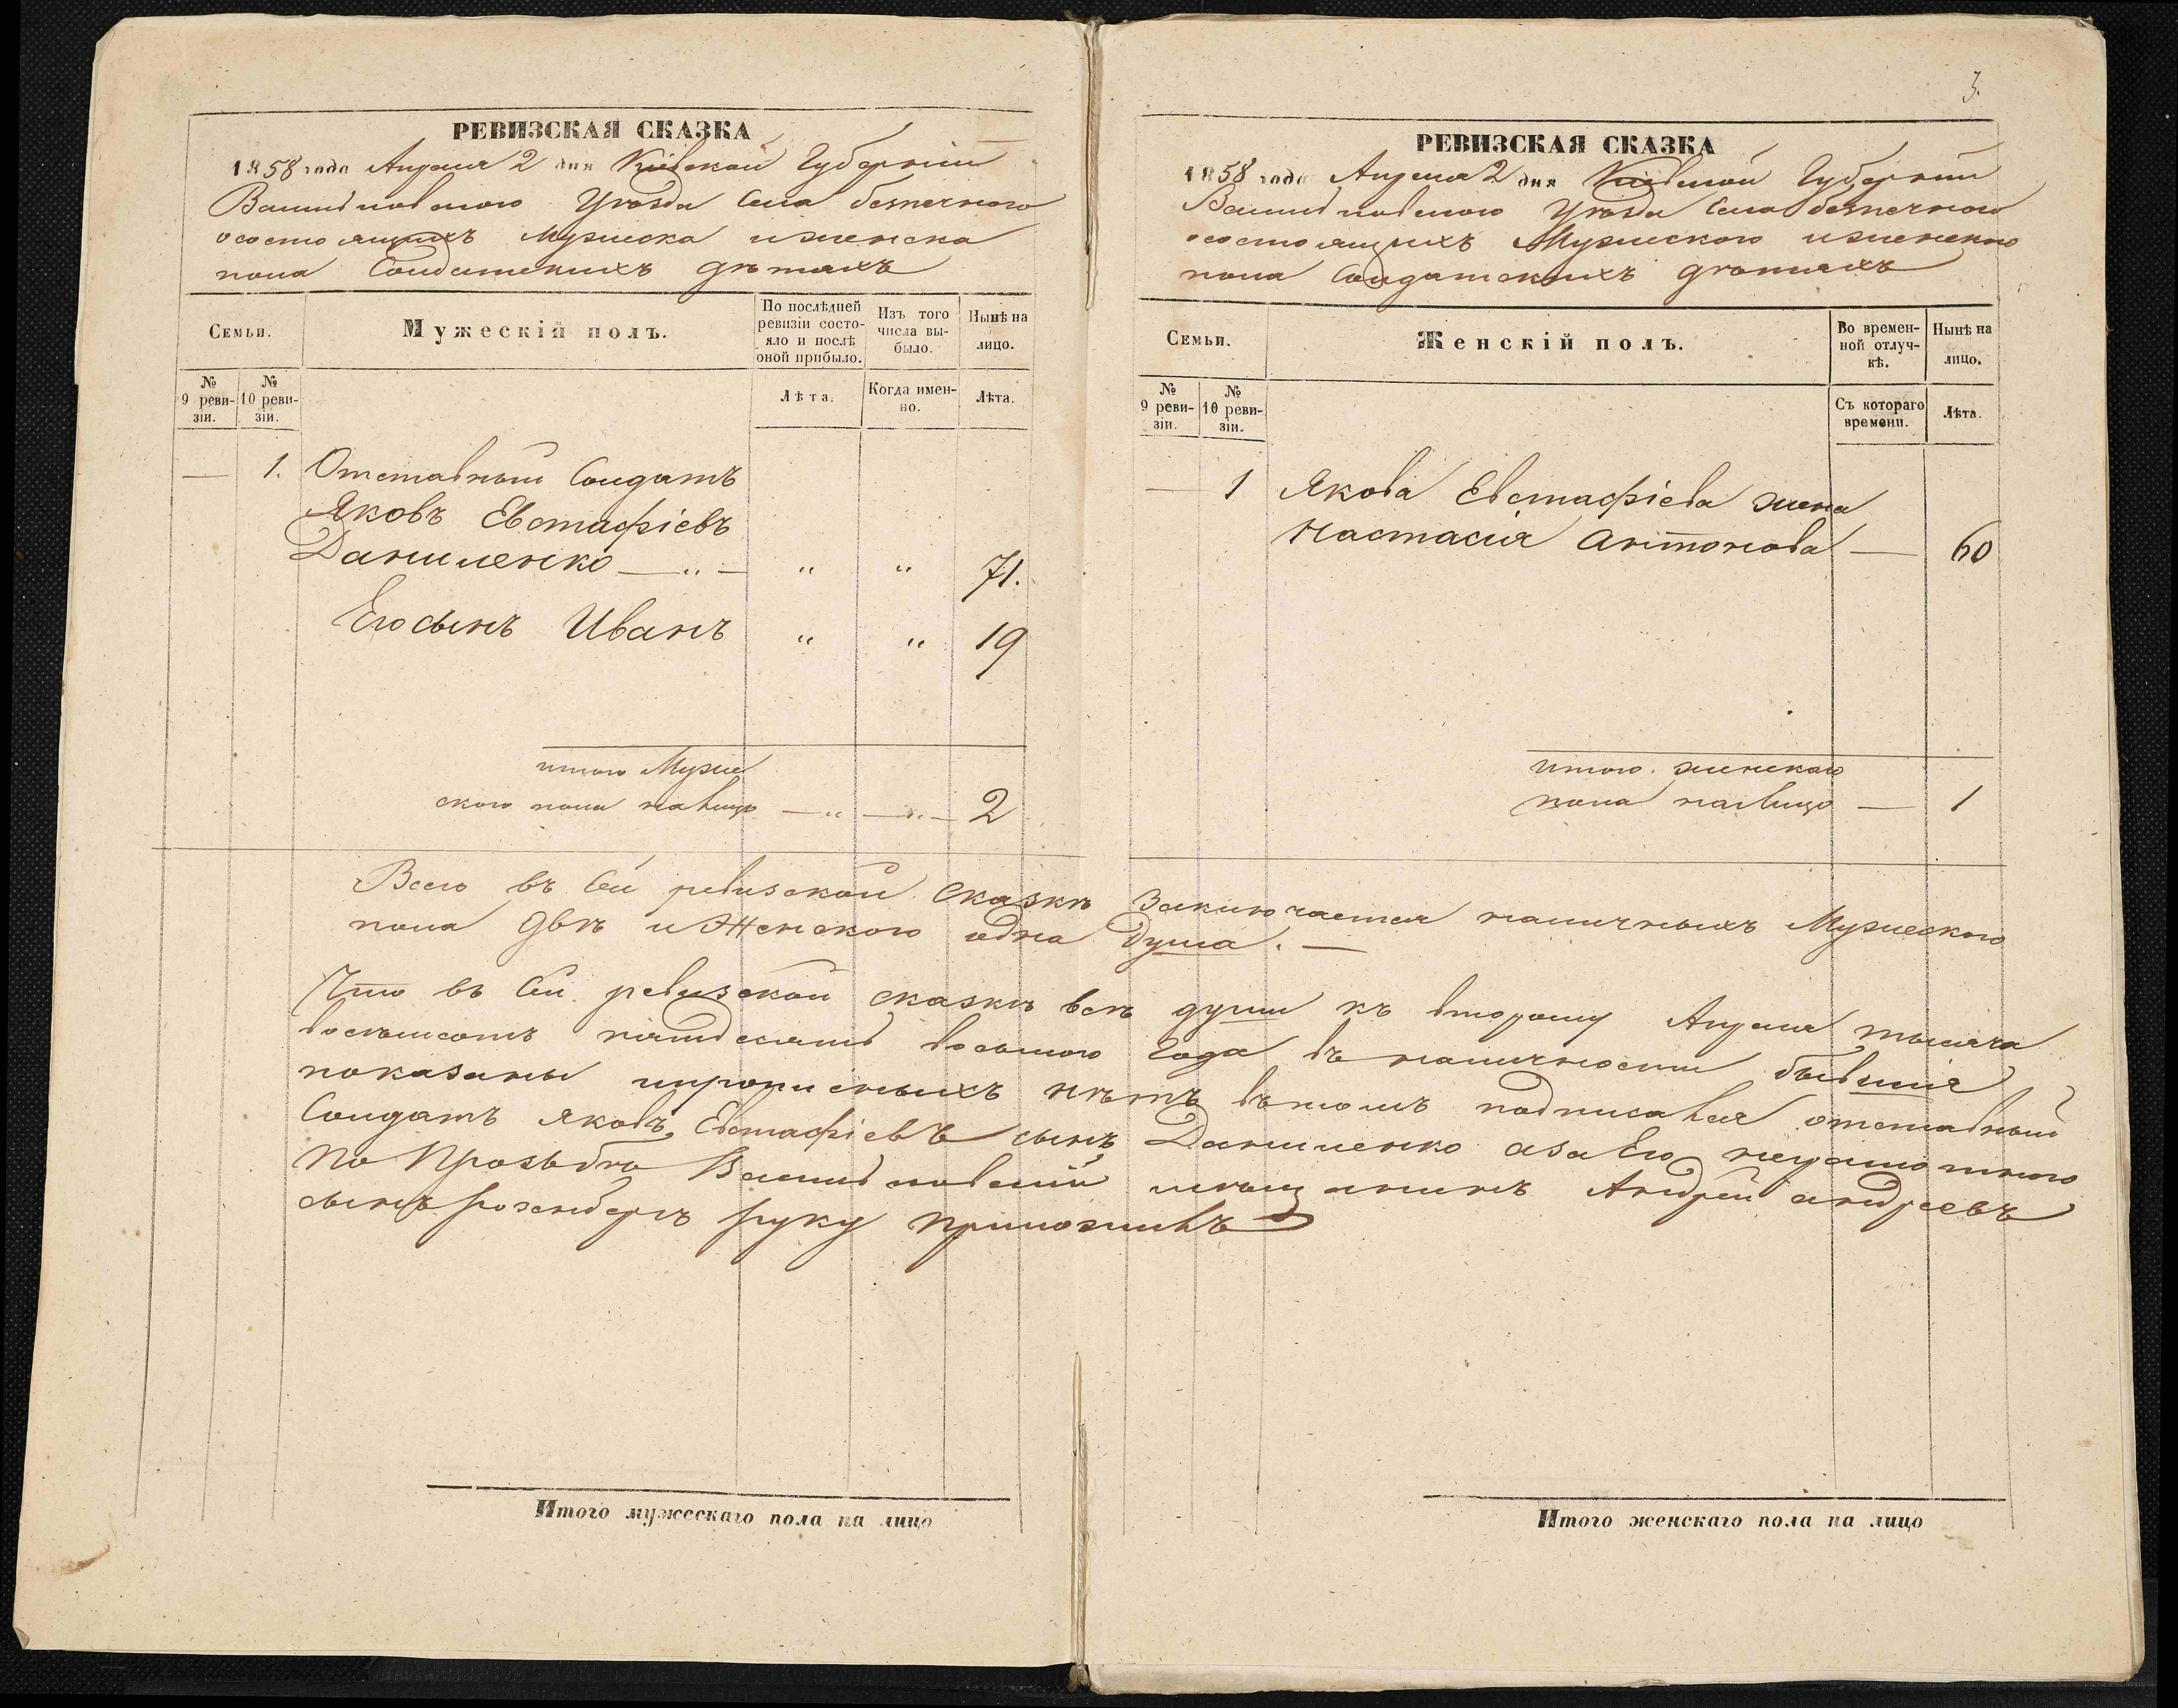 РЕВИЗСКАЯ СКАЗКА
1858 года Апреля 2 дня Кіевской Губерніи
Васильковского Уезда Села безпечного
осостоящихъ Мужеска иженска
пола Солдатскихъ детяхъ
Семьи.
Мужескій полъ.
По послѣдней ревизіи состо-
яло и послѣ оной прибыло.
Изъ того числа вы-
было.
Нынѣ на лицо.
№ 9 реви-
зіи.
№ 10 реви-
зіи.
Лѣта.
Когда имен-
но.
Лѣта.
— 1. Отставный Солдатъ
Яковъ Евстафіевъ
Даниленко — „ — „ „ 71.
Его сынъ Иванъ „ „ 19
итого Муже
ского пола налицо — „ — „ — 2
3.
РЕВИЗСКАЯ СКАЗКА
1858 года Апреля 2 дня Кіевской Губерніи
Васильковского Уезда Села безпечного
осостоящихъ Мужеского иженского
пола Солдатскихъ детяхъ
Семьи.
Женскій полъ.
Во времен-
ной отлуч-
кѣ.
Нынѣ на лицо.
№ 9 реви-
зіи.
№ 10 реви-
зіи.
Съ котораго времени.
Лѣта.
— 1 Якова Евстафіева жена
Настасія Антонова — 60
итого женскаго
пола налицо — 1
Всего въ Сей ревизской Сказкѣ Заключается наличныхъ Мужеского
пола двѣ и Женского одна душа. —
Что въ Сей ревизской сказкѣ всѣ души къ второму Апреля тысяча
восемьсотъ пятдесятъ восьмого Года въ наличности бывшія
показаны ипрописныхъ нѣтъ вътомъ подписался отставный
Солдатъ Яковъ Евстафіевъ сынъ Даниленко азаЕго неграмотного
По Прозьбѣ Васильковскій мещанинъ Андрей андреевъ
сынъ розенбергъ руку приложилъ
Итого мужескаго пола на лицо
Итого женскаго пола на лицо